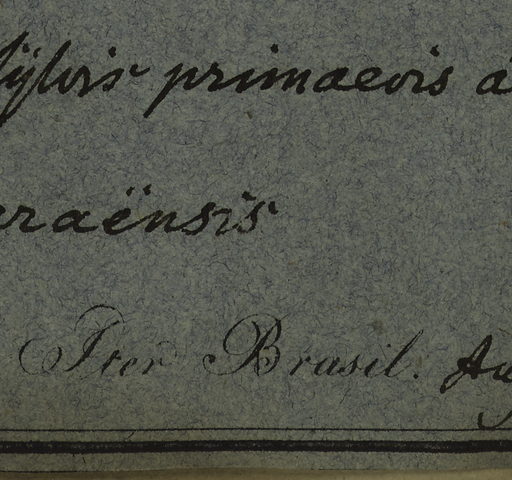 sylvis primaevis a
raënsis
Iter Brasil. Au